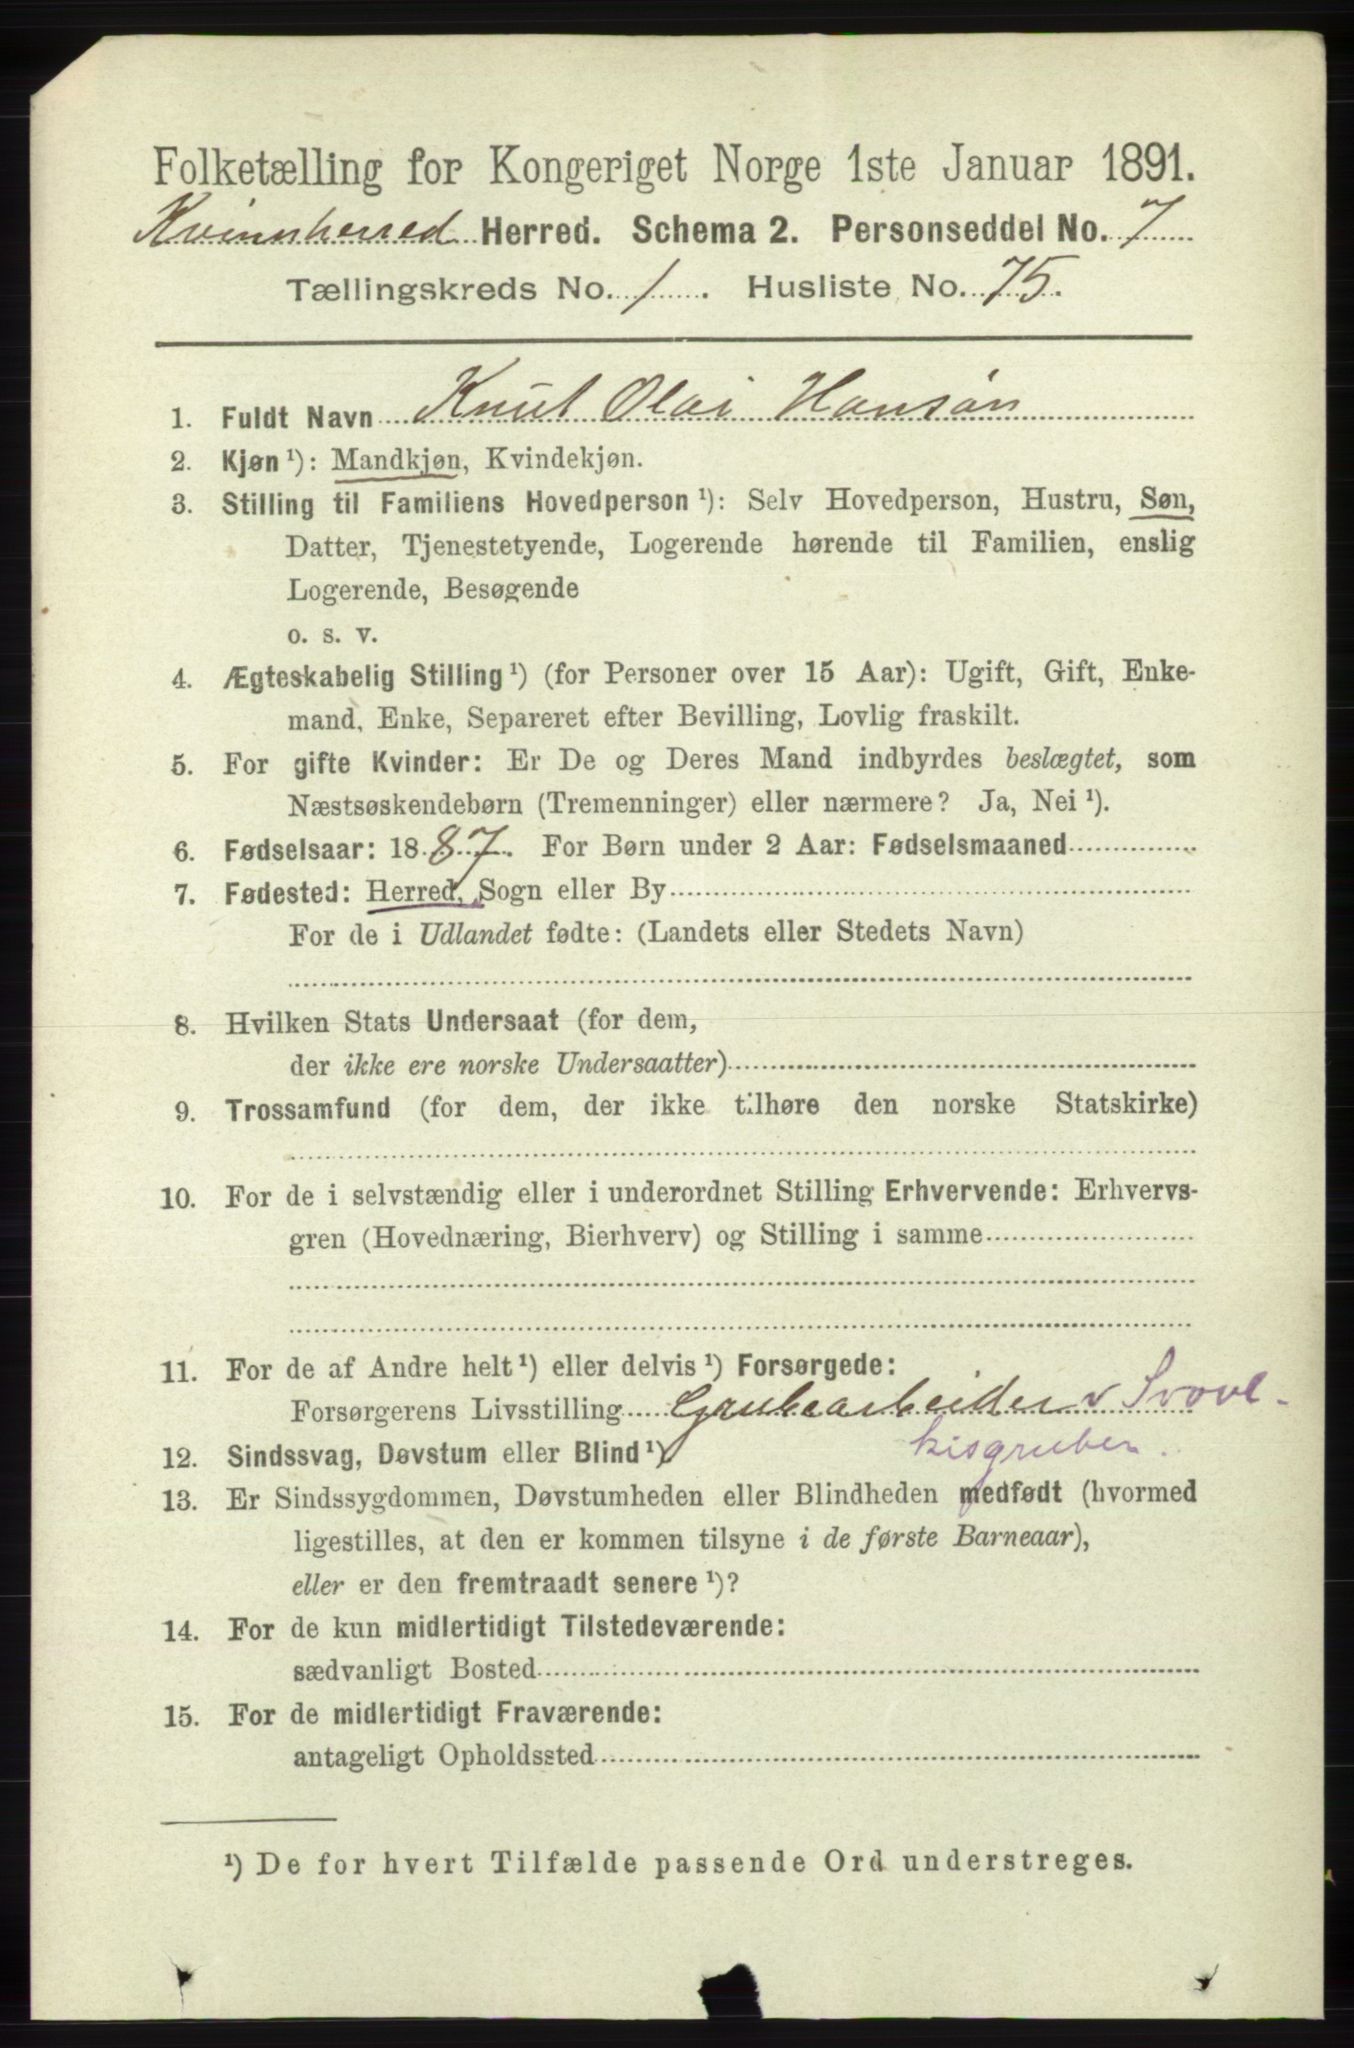 Folketælling for Kongeriget Norge 1ste Januar 1891.
Kvinnherred Herred. Schema 2. Personseddel No. 7
Tællingskreds No. 1. Husliste No. 75.
1. Fuldt Navn Knut Olai Hansøn
2. Kjøn¹): Mandkjøn, Kvindekjøn.
3. Stilling til Familiens Hovedperson¹): Selv Hovedperson, Hustru, Søn,
Datter, Tjenestetyende, Logerende hørende til Familien, enslig
Logerende, Besøgende
o. s. v.
4. Ægteskabelig Stilling¹) (for Personer over 15 Aar): Ugift, Gift, Enke-
mand, Enke, Separeret efter Bevilling, Lovlig fraskilt.
5. For gifte Kvinder: Er De og Deres Mand indbyrdes beslægtet, som
Næstsøskendebørn (Tremenninger) eller nærmere? Ja, Nei¹).
6. Fødselsaar: 1887. For Børn under 2 Aar: Fødselsmaaned
7. Fødested: Herred, Sogn eller By
For de i Udlandet fødte: (Landets eller Stedets Navn)
8. Hvilken Stats Undersaat (for dem,
der ikke ere norske Undersaatter)
9. Trossamfund (for dem, der ikke tilhøre den norske Statskirke)
10. For de i selvstændig eller i underordnet Stilling Erhvervende: Erhvervs-
gren (Hovednæring, Bierhverv) og Stilling i samme
11. For de af Andre helt¹) eller delvis¹) Forsørgede:
Forsørgerens Livsstilling Grubearbeider v Svovl-
kisgruber.
12. Sindssvag, Døvstum eller Blind¹)
13. Er Sindssygdommen, Døvstumheden eller Blindheden medfødt (hvormed
ligestilles, at den er kommen tilsyne i de første Barneaar),
eller er den fremtraadt senere¹)?
14. For de kun midlertidigt Tilstedeværende:
sædvanligt Bosted
15. For de midlertidigt Fraværende:
antageligt Opholdssted
¹) De for hvert Tilfælde passende Ord understreges.